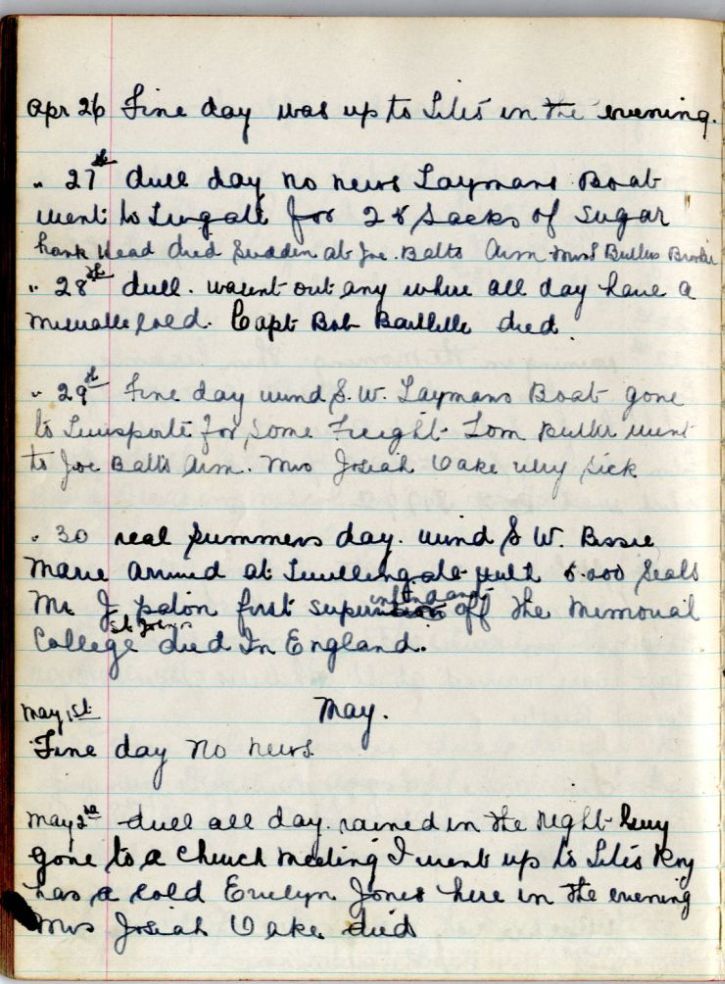 Apr 26 Fine day was up to Lilis in the evening.
" 27th dull day no news Laymans Boat
went to for 28 Sacks of Sugar
Head died Sudden at Joe. Batts Arm Mrs Butlers
" 28th dull. wasent out any where all day have a
cold. Capt Bob died.
" 29th Fine day wind S.W. Laymans Boat gone
to Lewisporte for some Freight Tom Butler went
to Joe Batts Arm. Mrs Josiah Oake very sick
" 30 real summers day. wind S W. Bessie
Marie arrived at with 6.000 Seals
Mr J first off the Memorial
St Johns
College died In England.
May.
May 1st
Fine day no news
May 2nd dull all day. rained in the night
gone to a church meeting I went up to Lilis Roy
has a cold Evelyn Jones here in the evening
Mrs Josiah Oake died